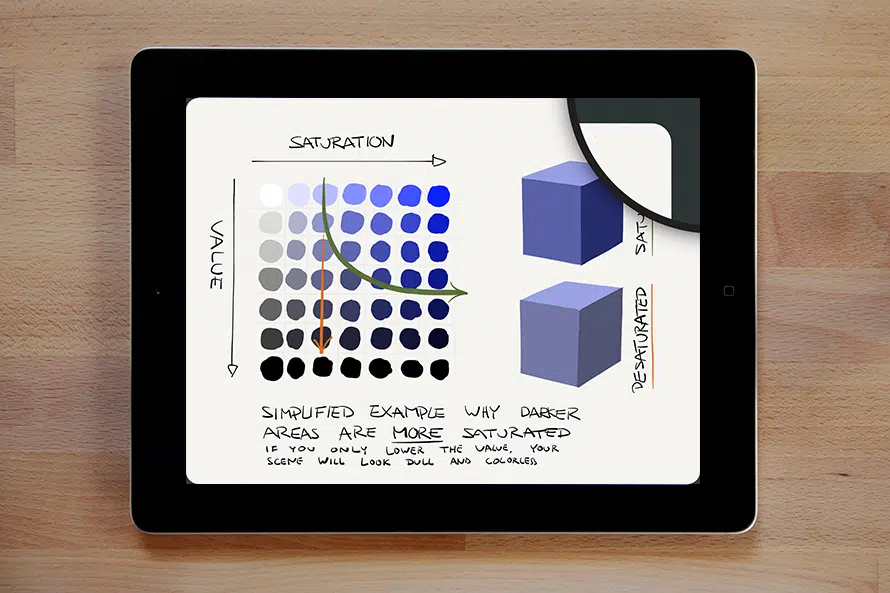 SATURATION
VALUE
DESATURATED
SIMPLIFIED EXAMPLE WHY DARKER
AREAS ARE MORE SATURATED
IF YOU ONLY LOWER THE VALUE, YOUR
SCENE WILL LOOK DULL AND COLORLESS